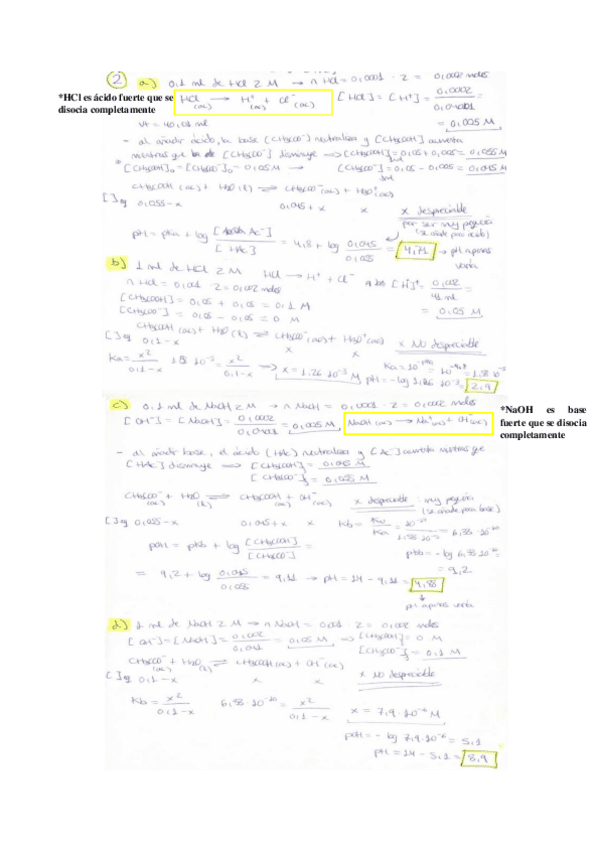 2 a) 0,1 ml de HCl 2 M → n HCl = 0,0001 · 2 = 0,0002 moles
*HCl es ácido fuerte que se disocia completamente
HCl (ac) → H⁺ (ac) + Cl⁻ (ac) [HCl] = [H⁺] = 0,0002 / 0,04001 = 0,005 M
Vt = 40,01 ml
- al añadir ácido, la base (CH₃COO⁻) neutraliza y [CH₃COOH] aumenta
mientras que [CH₃COO⁻] disminuye → [CH₃COOH] = 0,05 + 0,005 = 0,055 M
* [CH₃COOH]₀ = [CH₃COO⁻]₀ = 0,05 M → [CH₃COO⁻] = 0,05 - 0,005 = 0,045 M
CH₃COOH (ac) + H₂O (l) ⇌ CH₃COO⁻ (ac) + H₃O⁺ (ac)
[ ] eq 0,055 - x 0,045 + x x x despreciable
por ser muy pequeña
(se añade poco ácido)
pH = pKa + log [Ac⁻] / [HAc] = 4,8 + log 0,045 / 0,055 = 4,71 → pH apenas varía
b) 1 ml de HCl 2 M HCl → H⁺ + Cl⁻
n HCl = 0,001 · 2 = 0,002 moles [H⁺] = 0,002 / 41 ml = 0,05 M
[CH₃COOH] = 0,05 + 0,05 = 0,1 M
[CH₃COO⁻] = 0,05 - 0,05 = 0 M
CH₃COOH (ac) + H₂O (l) ⇌ CH₃COO⁻ (ac) + H₃O⁺ (ac)
[ ] eq 0,1 - x x x x NO despreciable
Ka = x² / 0,1 - x = x² / 0,1 - x → x = 1,26 · 10⁻³ M pH = - log 1,26 · 10⁻³ = 2,9
c) 0,1 ml de NaOH 2 M → n NaOH = 0,0001 · 2 = 0,0002 moles
[OH⁻] = [NaOH] = 0,0002 / 0,04001 = 0,005 M NaOH (ac) → Na⁺ (ac) + OH⁻ (ac)
*NaOH es base fuerte que se disocia completamente
- al añadir base, el ácido (HAc) neutraliza y [Ac⁻] aumenta mientras que
[HAc] disminuye → [CH₃COOH] = 0,045 M
[CH₃COO⁻] = 0,055 M
CH₃COO⁻ (ac) + H₂O (l) ⇌ CH₃COOH (ac) + OH⁻ (ac) x despreciable : muy pequeña
(se añade poca base)
[ ] eq 0,055 - x 0,045 + x x Kb = Kw / Ka = 6,38 · 10⁻¹⁰
pOH = pKb + log [CH₃COOH] / [CH₃COO⁻] =
pKb = - log 6,38 · 10⁻¹⁰ = 9,2
= 9,2 + log 0,045 / 0,055 = 9,11 → pH = 14 - 9,11 = 4,88
pH apenas varía
d) 1 ml de NaOH 2 M → n NaOH = 0,001 · 2 = 0,002 moles
[OH⁻] = [NaOH] = 0,002 / 0,041 = 0,05 M → [CH₃COOH] = 0 M
[CH₃COO⁻] = 0,1 M
CH₃COO⁻ (ac) + H₂O (l) ⇌ CH₃COOH (ac) + OH⁻ (ac)
[ ] eq 0,1 - x x x x NO despreciable
Kb = x² / 0,1 - x 6,38 · 10⁻¹⁰ = x² / 0,1 - x x = 7,9 · 10⁻⁶ M
pOH = - log 7,9 · 10⁻⁶ = 5,1
pH = 14 - 5,1 = 8,9